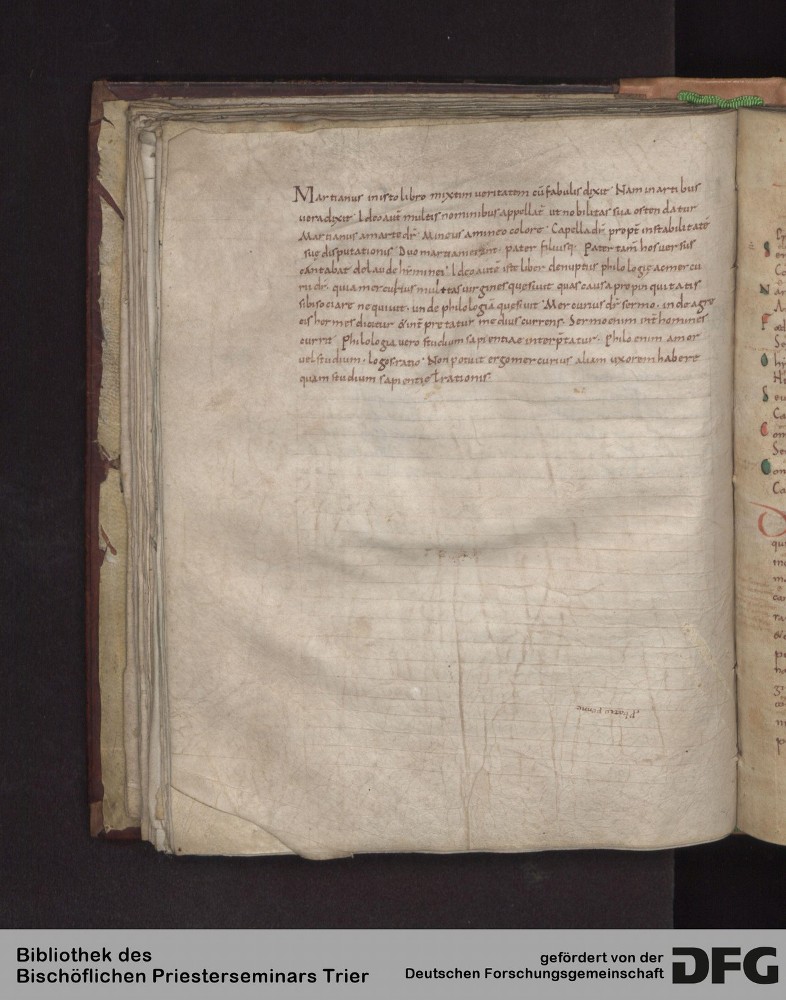 Martianus inisto libro mixtim veritatem cū fabulis dixit. Nam in artibus
vera dixit. Ideo aut̄ multis nominibus appellat̄ ut nobilitas sua ostendatur
Martianus a marte dr̄. Mineus amineo colore. Capella dr̄ propt̄ instabilitatē
suę disputationis. Duo martiani erant. pater filiusq;. Pater tam̄ hos versus
cantabat de laude hỹminei. Ideo autē iste liber de nuptiis philologię ac mercu
rii dr̄. quia mercurius multas virgines quesivit quas causa propinquitatis
sibi sociare nequivit. unde philologiā quesivit. Mercurius dr̄ sermo. unde a gre
cis hermes dicitur & int̄pretatur medius currens. Sermo enim int̄ homines
currit. Philologia vero studium sapientiae interp̄tatur. Philo enim amor
vel studium. logos ratio. Non potuit ergo mercurius aliam uxorem habere
quam studium sapientię ł rationis.
Bibliothek des
Bischöflichen Priesterseminars Trier
gefördert von der
Deutschen Forschungsgemeinschaft
DFG